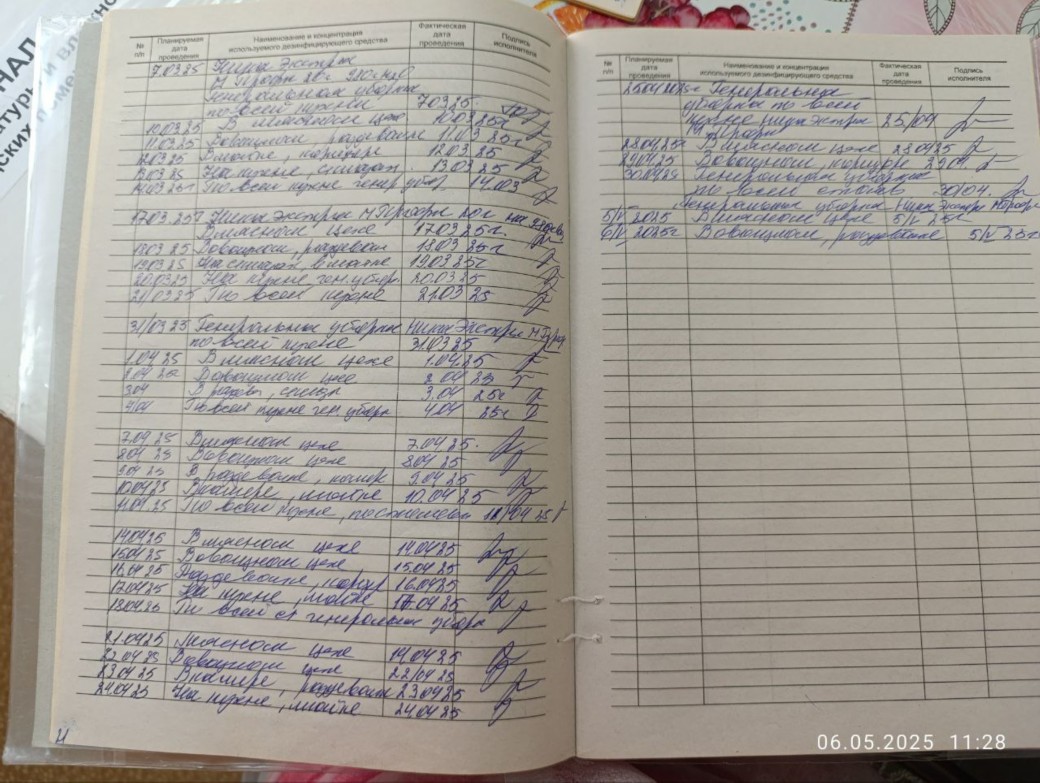 НАЛ
атуры и вла
ских поме
№ п/п Планируемая дата проведения Наименование и концентрация используемого дезинфицирующего средства Фактическая дата проведения Подпись исполнителя
7.03.25 Ника Экстра
Генеральная уборка
по всей кухни 7.03.25.
10.03.25 В мясном цехе 10.03 25г
11.03.25 Вовощном, раздевалке 11.03 25г
12.03.25 В мойке, коридоре 12.03 25
13.03.25 На кухне, складах 13.03 25
14.03.25г По всей кухне генер. убор. 14.03
17.03.25г Ника Экстра М Профи 20г на 980мл
В мясном цехе 17.03 25г.
18.03.25 Вовощном, раздевал 18.03 25г
19.03.25 На складах, в мойке 19.03 25г
20.03.25 На кухне ген. убор. 20.03 25
21/03.25 По всей кухне 21.03 25
31/03 25 Генеральная уборка Ника Экстра М Профи
по всей кухне 31.03.25
1.04.25 В мясном цехе 1.04.25
2.04 25 Вовощном цехе 2.04 25
3.04 В раздев, склады 3.04 25г
4/04 По всей кухне ген. уборк 4.04 25г
7.04.25 В мясном цехе 7.04 25.
8.04 25 Вовощном цехе 8.04 25
9.04 25 В раздевалке, 9.04 25
10.04.25 , мойке 10.04 25
11.04.25 По всей кухне, 11/04 25
14.04.25 В мясном цехе 14.04 25
15.04.25 Вовощном цехе 15.04 25
16.04.25 Раздевалке, коридор 16.04 25
17.04.25 На кухне, мойке 17.04 25
18.04.25 По всей ст генеральная уборк
21.04.25 Мясном цехе 19.04 25
22.04.25 Вовощном цехе 22/04 25
23.04.25 раздевалк 23.04 25
24.04.25 На кухне, мойке 24.04 25
№ п/п Планируемая дата проведения Наименование и концентрация используемого дезинфицирующего средства Фактическая дата проведения Подпись исполнителя
25.04.2025г Генеральная
уборка по всей
кухне Ника Экстра 25/04
М Профи
28.04.25г В мясном цехе 28.04 25
29.04.25 Вовощном, коридоре 29.04.
30.04.25 Генеральная уборка
по всей 30/04.
Генеральная уборка Ника Экстра М Профи
5/V 2025 В мясном цехе 5/V 25г
6/V 2025г Вовощном, раздевалке 5/V 25г
06.05.2025 11:28